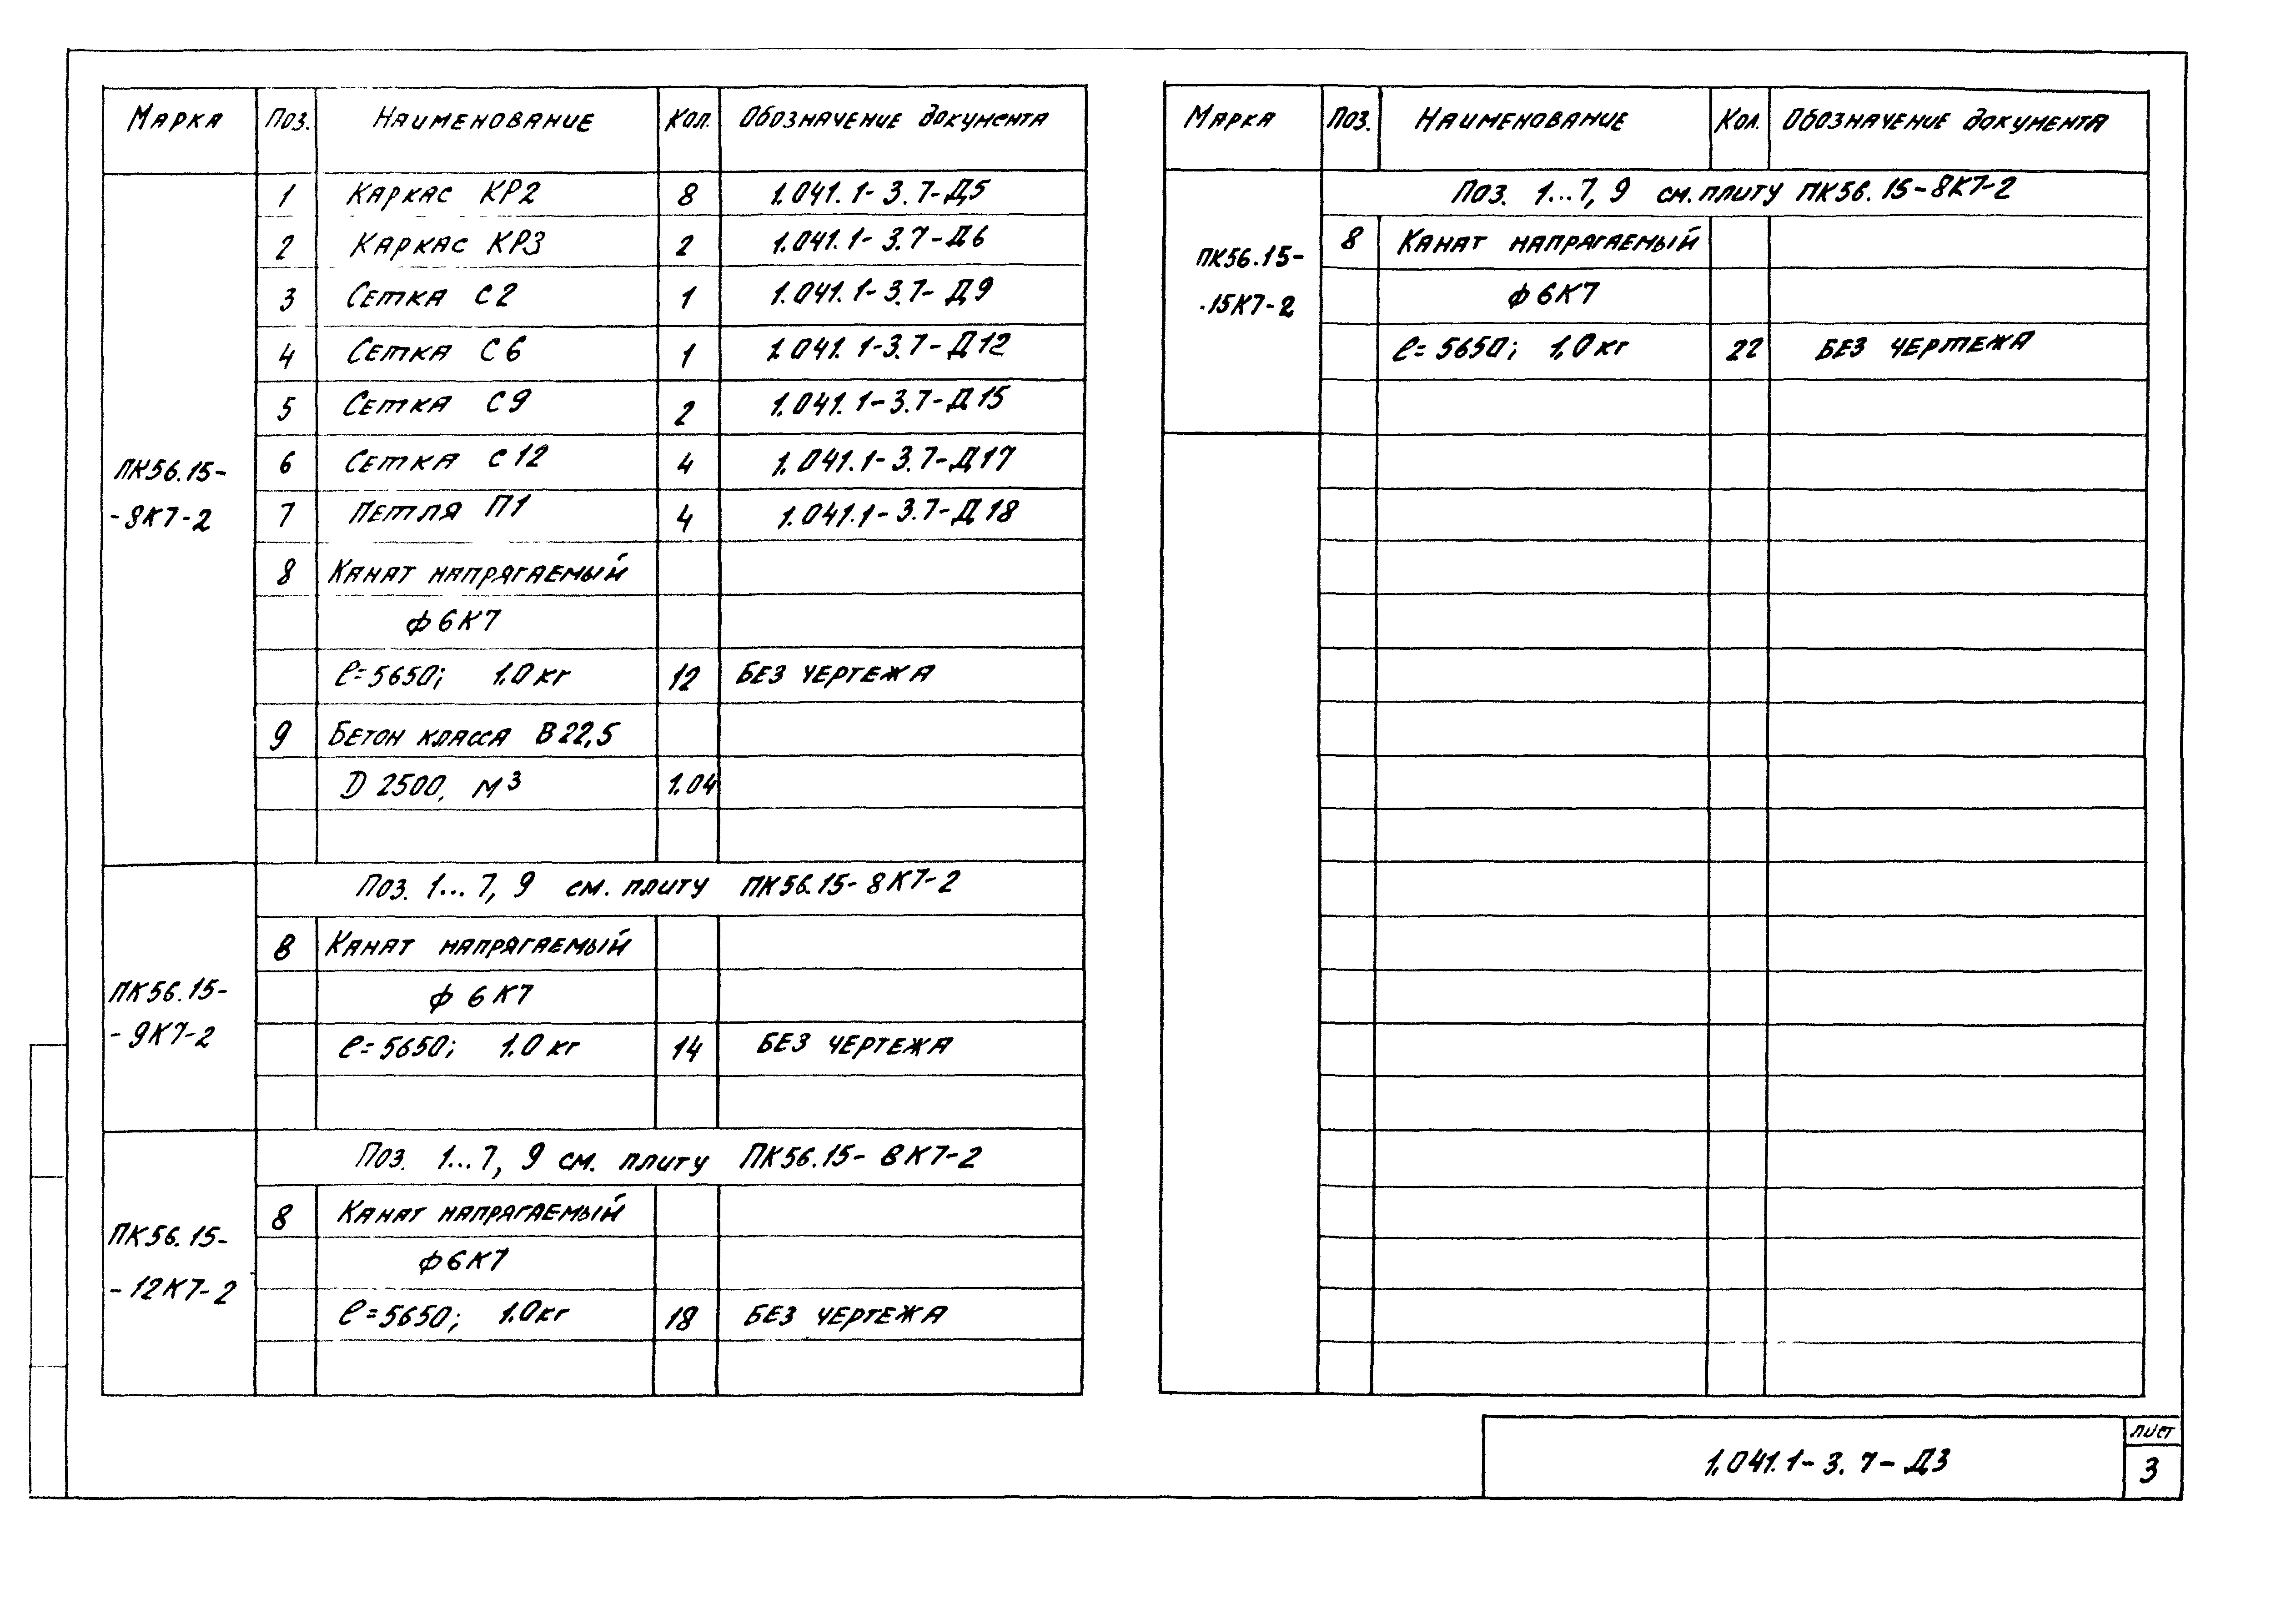 Марка Поз. Наименование Кол. Обозначение документа
ПК56.15-
-8К7-2
1 Каркас КР2 8 1.041.1-3.7-Д5
2 Каркас КР3 2 1.041.1-3.7-Д6
3 Сетка С2 1 1.041.1-3.7-Д9
4 Сетка С6 1 1.041.1-3.7-Д12
5 Сетка С9 2 1.041.1-3.7-Д15
6 Сетка С12 4 1.041.1-3.7-Д17
7 Петля П1 4 1.041.1-3.7-Д18
8 Канат напрягаемый
ф6К7
ℓ=5650; 1.0кг 12 Без чертежа
9 Бетон класса В22,5
D 2500, м³ 1.04
ПК56.15-
-9К7-2
Поз. 1...7, 9 см. плиту ПК56.15-8К7-2
8 Канат напрягаемый
ф 6К7
ℓ=5650; 1.0 кг 14 Без чертежа
ПК56.15-
-12К7-2
Поз. 1...7, 9 см. плиту ПК56.15-8К7-2
8 Канат напрягаемый
ф6К7
ℓ=5650; 1.0кг 18 Без чертежа
Марка Поз. Наименование Кол. Обозначение документа
ПК56.15-
-15К7-2
Поз. 1...7, 9 см. плиту ПК56.15-8К7-2
8 Канат напрягаемый
ф6К7
ℓ=5650; 1,0кг 22 Без чертежа
1.041.1-3.7-Д3
Лист
3